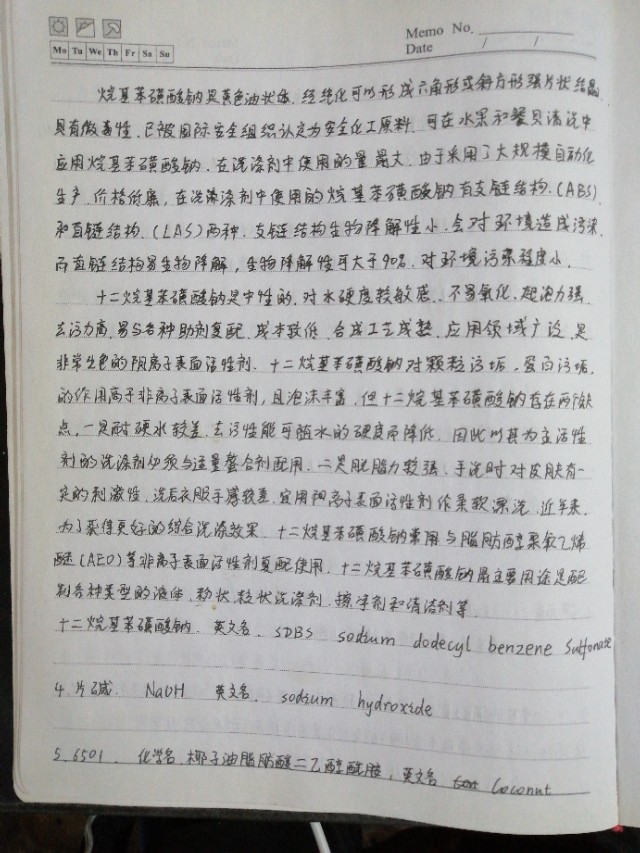 Memo No.
Mo Tu We Th Fr Sa Su
Date / /
烷基苯磺酸钠是黄色油状体，经纯化可以形成六角形或斜方形强片状结晶
具有微毒性，已被国际安全组织认定为安全化工原料，可在水果和餐具清洗中
应用烷基苯磺酸钠，在洗涤剂中使用的量最大，由于采用了大规模自动化
生产，价格低廉，在洗涤剂中使用的烷基苯磺酸钠有支链结构，(ABS)
和直链结构，(LAS)两种，支链结构生物降解性小，会对环境造成污染，
而直链结构易生物降解，生物降解性可大于90%，对环境污染程度小，
十二烷基苯磺酸钠是中性的，对水硬度较敏感，不易氧化，起泡力强，
去污力高，易与各种助剂复配，成本较低，合成工艺成熟，应用领域广泛，是
非常出色的阴离子表面活性剂，十二烷基苯磺酸钠对颗粒污垢，蛋白污垢，
的作用高于非离子表面活性剂，且泡沫丰富，但十二烷基苯磺酸钠存在两个缺
点，一是耐硬水较差，去污性能可随水的硬度而降低，因此以其为主活性
剂的洗涤剂必须与适量螯合剂配用，二是脱脂力较强，手洗时对皮肤有一
定的刺激性，洗后衣服手感较差，宜用阳离子表面活性剂作柔软漂洗，近年来，
为了获得更好的综合洗涤效果，十二烷基苯磺酸钠常用与脂肪醇聚氧乙烯
醚(AEO)等非离子表面活性剂复配使用，十二烷基苯磺酸钠最主要用途是配
制各种类型的液体，粉状，粒状洗涤剂，擦净剂和清洁剂等，
十二烷基苯磺酸钠，英文名，SDBS sodium dodecyl benzene Sulfonate
4 片碱， NaOH 英文名， sodium hydroxide
5. 6501， 化学名，椰子油脂肪醇二乙醇酰胺，英文名 Coconut